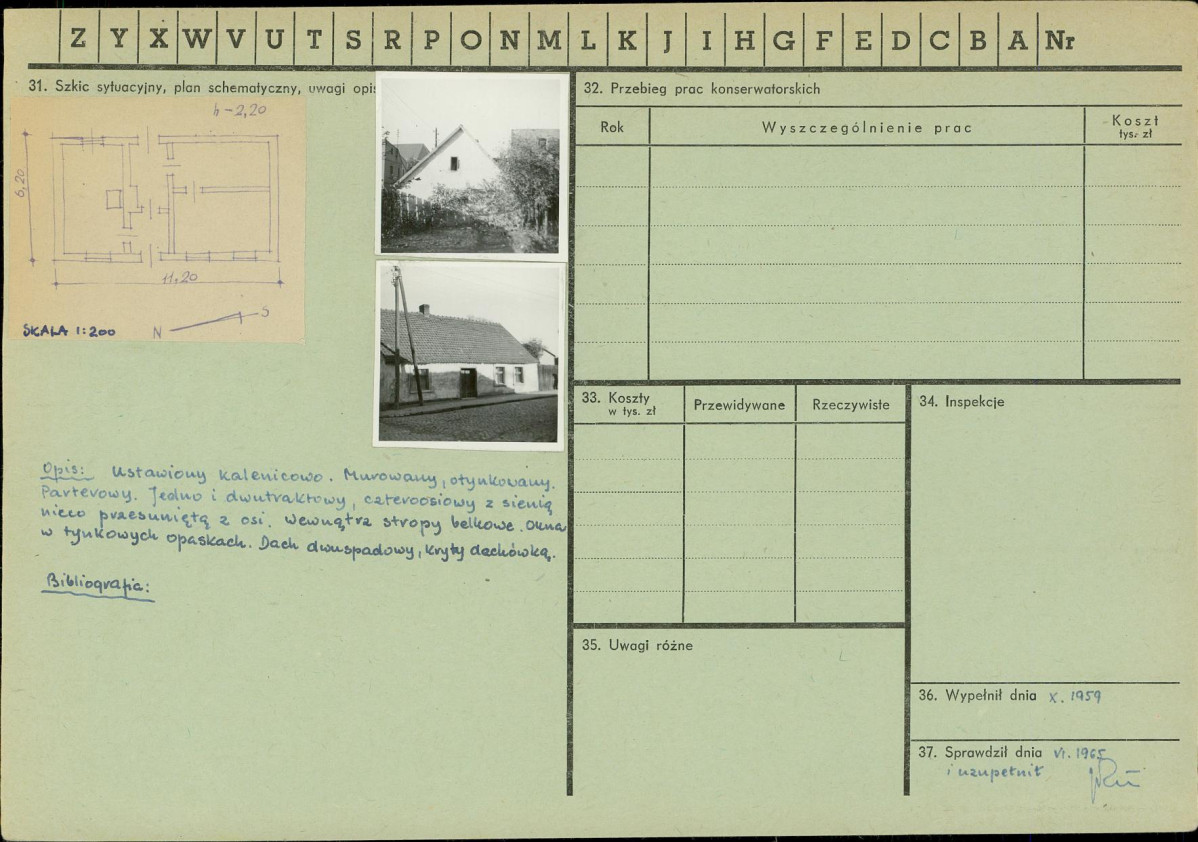 Z Y X W V U T S R P O N M L K J I H G F E D C B A Nr
31. Szkic sytuacyjny, plan schematyczny, uwagi opis
h-2,20
6,20
11,20
SKALA 1:200
N S
Opis: Ustawiony kalenicowo. Murowany, otynkowany.
Parterowy. Jedno i dwutraktowy, czteroosiowy z sienią
nieco przesuniętą z osi. Wewnątrz stropy belkowe. Okna
w tynkowych opaskach. Dach dwuspadowy, kryty dachówką.
Bibliografia:
32. Przebieg prac konserwatorskich
Rok Wyszczególnienie prac Koszt
tys. zł
33. Koszty
w tys. zł
Przewidywane
Rzeczywiste
34. Inspekcje
35. Uwagi różne
36. Wypełnił dnia X. 1959
37. Sprawdził dnia VI. 1965
i uzupełnił